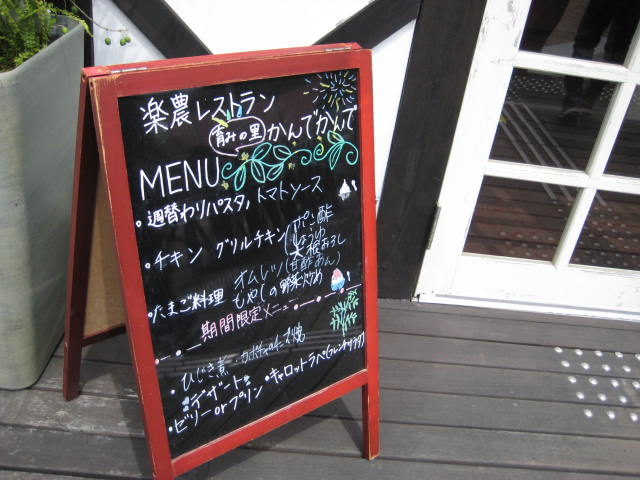 楽農レストラン
育みの里 かんでかんで
MENU
・週替わりパスタ, トマトソース
・チキン グリルチキン ポン酢
しょうゆ
大根おろし
・たまご料理 オムレツ(甘酢あん)
もやしの野菜炒め
期間限定メニュー
・ひじき煮
・キャロットラペ(フレンチサラダ)
デザート
・ゼリー or プリン